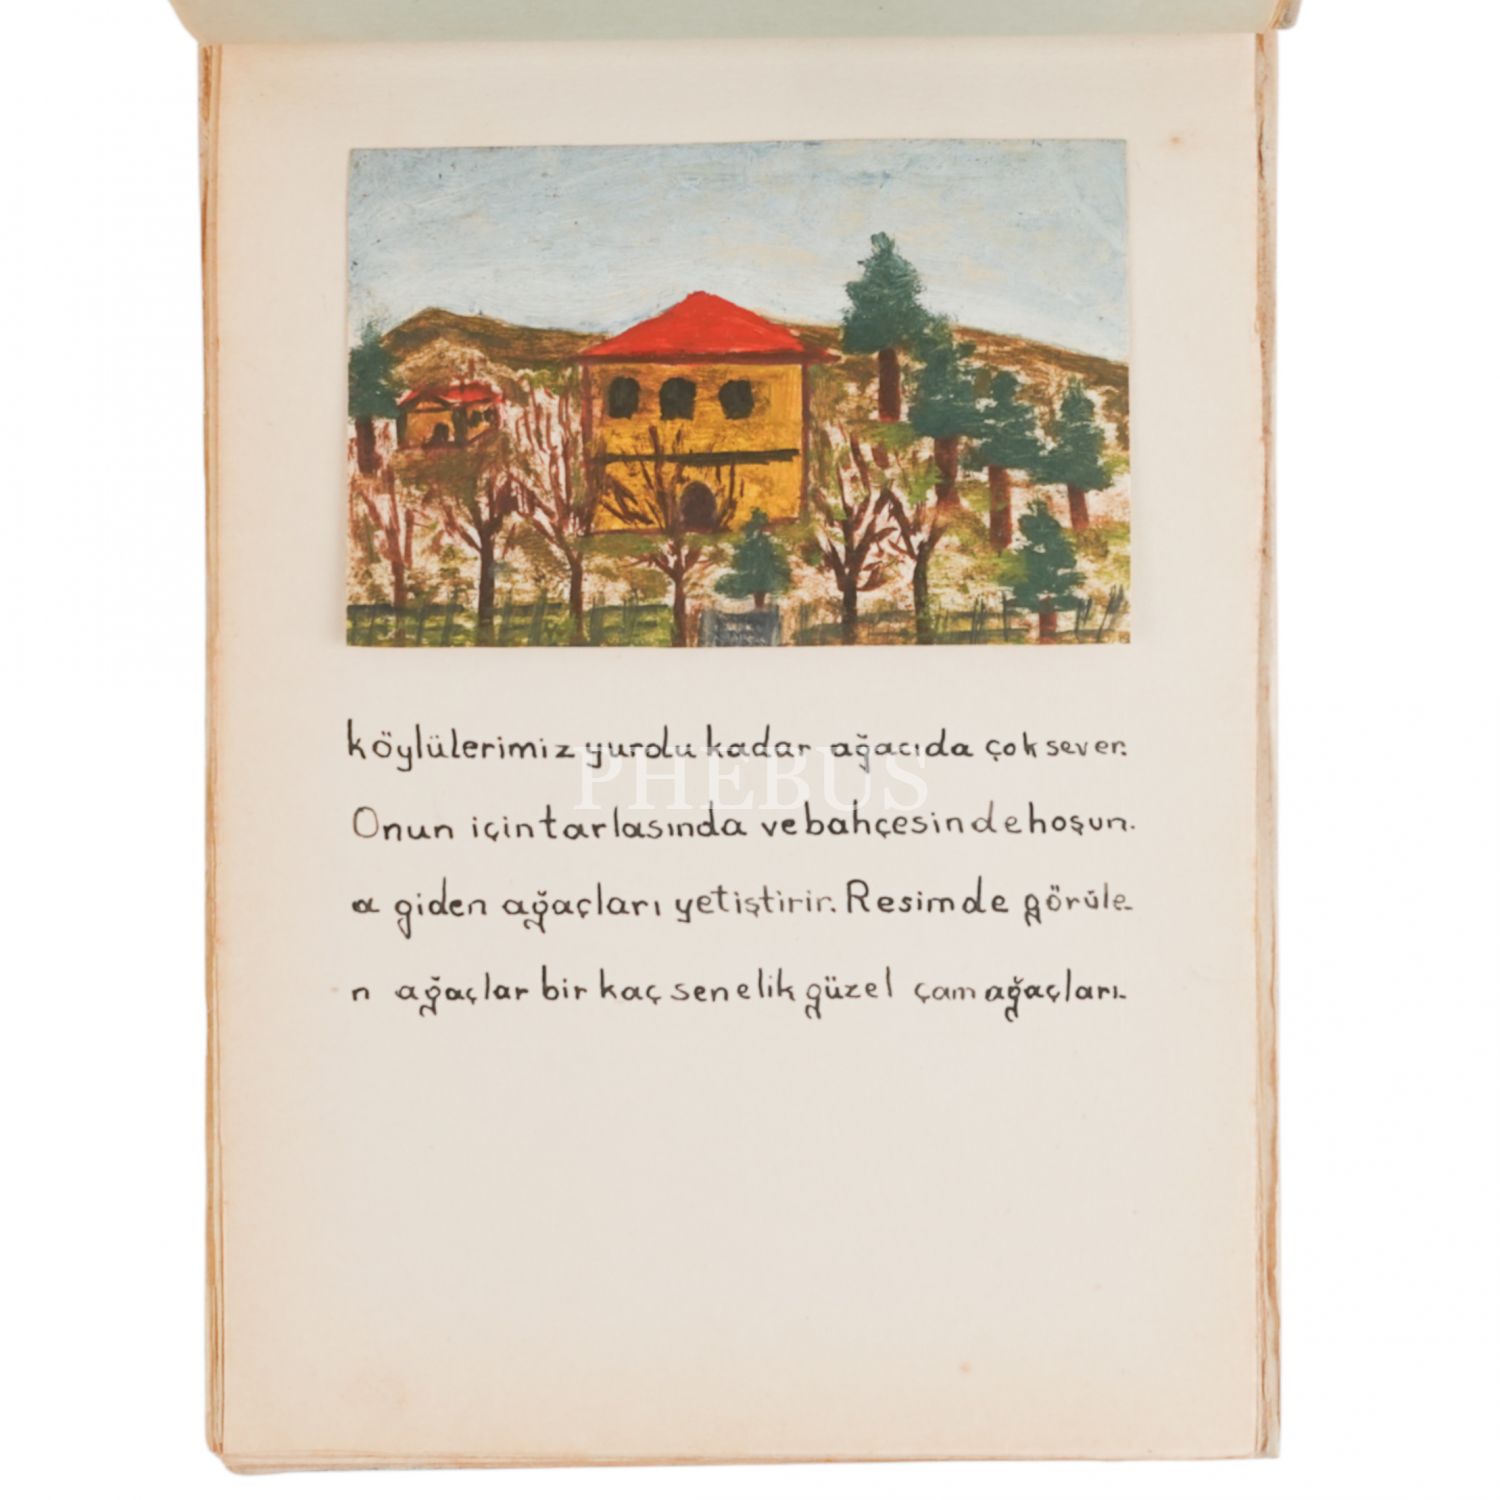 köylülerimiz yurdu kadar ağacıda çok sever.
PHEBUS
Onun için tarlasında ve bahçesinde hoşun.
a giden ağaçları yetiştirir. Resimde görüle-
n ağaçlar bir kaç senelik güzel çam ağaçları.